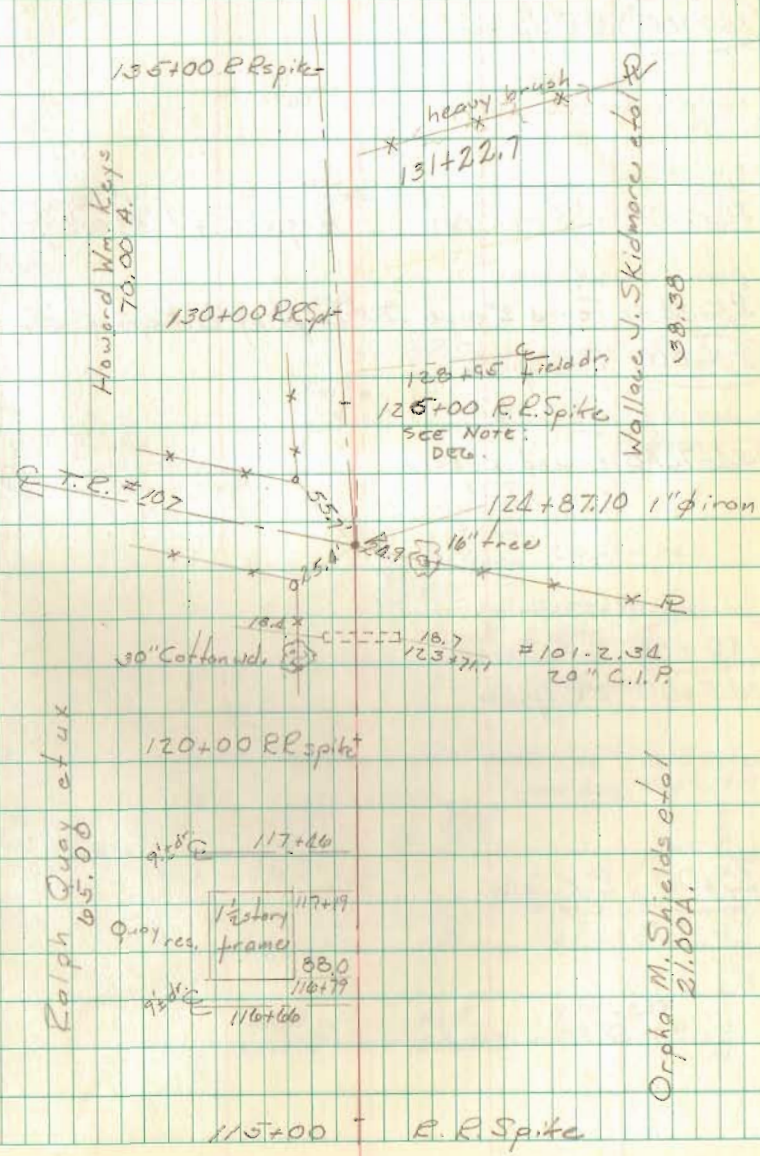 135+00 R.R spike
heavy brush
131+22.7
Howard Wm. Keys
70.00 A.
Wallace J. Skidmore etal
38.38
130+00 R.R Spk
℄
128+95 field dr.
125+00 R.R. Spike
SEE NOTE:
℄ T.R. #107
55.7'
124+87.10 1"ϕ iron
24.9
16" tree
25.4'
18.4
30" Cottonwd.
18.7
123+71.1
#101-2.34
20" C.I.P.
120+00 RR spike
Ralph Quay et ux
65.00
℄ 117+46
Quay res.
1½ story
frame
117+19
88.0
116+79
℄
116+66
Orpha M. Shields etal
21.00A.
115+00 R.R. Spike